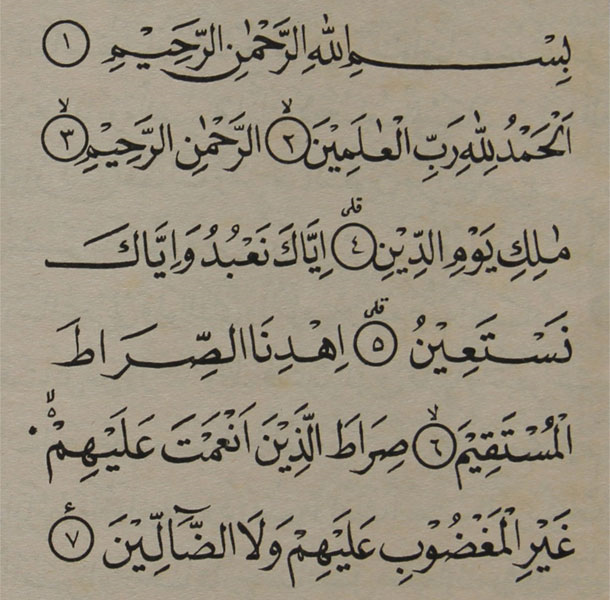 بِسْمِ اللهِ الرَّحْمٰنِ الرَّحِيْمِ ١
اَلْحَمْدُ لِلّٰهِ رَبِّ الْعٰلَمِيْنَ ۙ٢ الرَّحْمٰنِ الرَّحِيْمِ ۙ٣
مٰلِكِ يَوْمِ الدِّيْنِ ۗ٤ اِيَّاكَ نَعْبُدُ وَاِيَّاكَ
نَسْتَعِيْنُ ۗ٥ اِهْدِنَا الصِّرَاطَ
الْمُسْتَقِيْمَ ۙ٦ صِرَاطَ الَّذِيْنَ اَنْعَمْتَ عَلَيْهِمْ ەۙ
غَيْرِ الْمَغْضُوْبِ عَلَيْهِمْ وَلَا الضَّاۤلِّيْنَ ࣖ٧